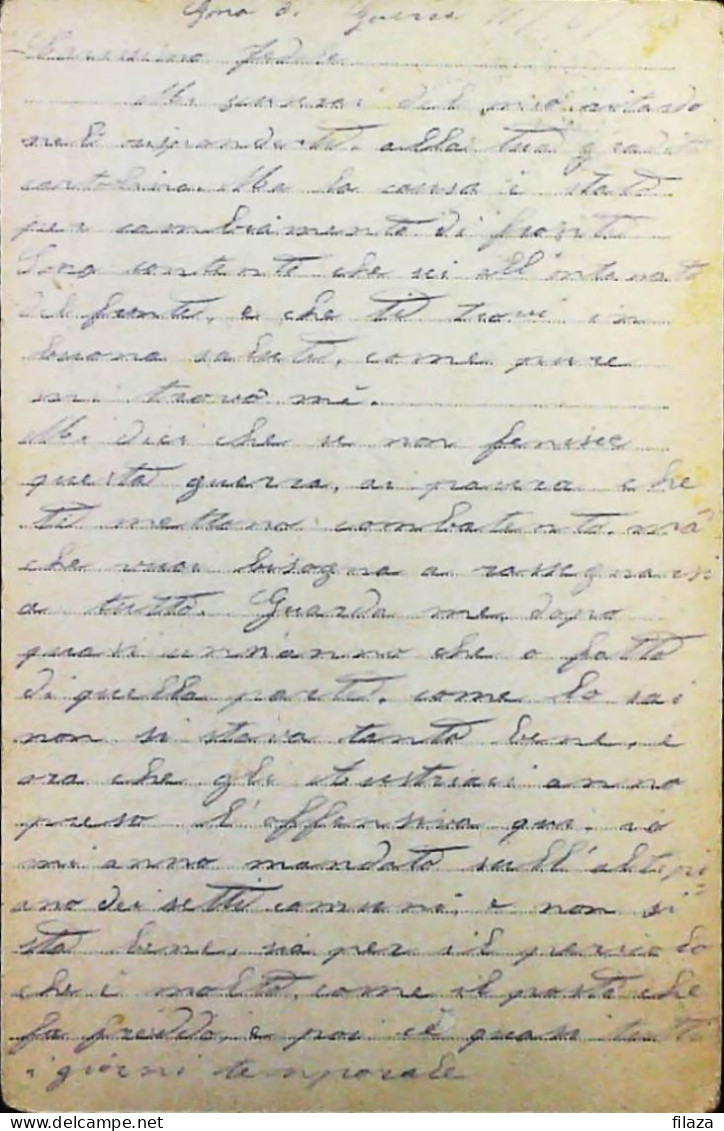 Zona di Guerra
Carissimo
Mi scuserai del mio ritardo
nel risponderti. alla tua gradita
cartolina. Ma la causa è stato
per cambiamento di fronte
Sono contento che sei all'ontanato
del fronte, e che ti trovi in
buona salute, come pure
mi trovo mé.
Mi dici che se non fenisce
questa guerra, ai paura che
ti mettano combatento. má
che vuoi bisogna a rassegnarsi
a tutto. Guarda me, dopo
quasi unnanno che o fatto
di quella parte, come lo sai
non si stava tanto bene, e
ora che gli Austriaci anno
preso l'offensiva qui. io
mi anno mandato sull'altipi
ano dei setti comuni, e non si
sta bene, sia per il pericolo
che è molto, come il posto che
fa freddo, e poi cé quasi tutti
i giorni temporale
filaza